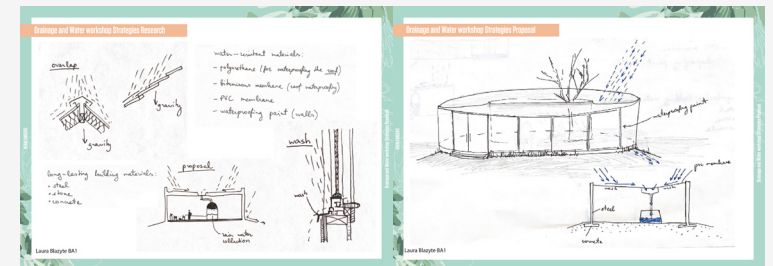 Drainage and Water workshop Strategies Research
overlap
gravity
gravity
water-resistant materials:
- polyurethane (for waterproofing the roof)
- bituminous membrane (roof waterproofing)
- PVC membrane
- waterproofing paint (walls)
wash
wash
long-lasting building materials:
• steel
• stone
• concrete
proposal
rain water
collection
Laura Blazyte BA1
Drainage and Water workshop Strategies Proposal
waterproofing paint
pvc membrane
wash
steel
concrete
Laura Blazyte BA1